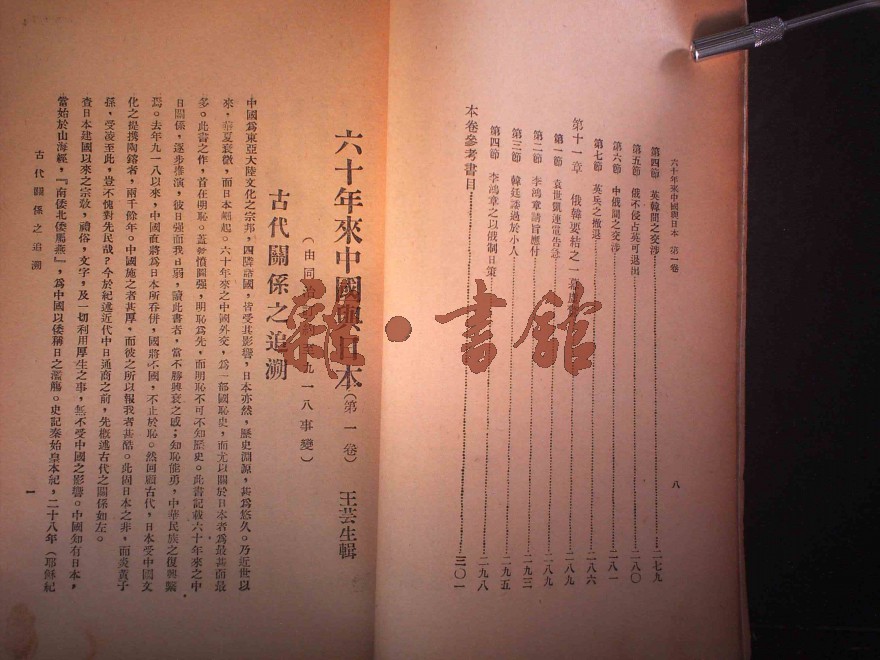 六十年來中國與日本 第一卷
八
第四節 英韓間之交涉 二七九
第五節 俄不侵占英可退出 二八〇
第六節 中俄間之交涉 二八一
第七節 英兵之撤退 二八六
第十一章 俄韓要結之一幕 二八九
第一節 袁世凱連電告急 二八九
第二節 李鴻章請旨應付 二九三
第三節 韓廷諉過於小人 二九五
第四節 李鴻章之以俄制日策 二九八
本卷參考書目 三〇一
六十年來中國與日本(第一卷) 王芸生輯
(由同治 九一八事變)
古代關係之追溯
中國爲東亞大陸文化之宗邦,四隣諸國,皆受其影響,日本亦然,歷史淵源,甚爲悠久。乃近世以
來,華夏衰微,而日本崛起。六十年來之中國外交,爲一部國恥史,而尤以關於日本者爲最甚而最
多。此書之作,首在明恥。蓋發憤圖强,明恥爲先,而明恥不可不知歷史。此書記載六十年來之中
日關係,逐步推演,彼日强而我日弱,讀此書者,當不勝興衰之感;知恥能勇,中華民族之復興繫
焉。去年九一八以來,中國直將爲日本所吞併,國將不國,不止於恥。然回顧古代,日本受中國文
化之提携陶鎔者,兩千餘年。中國施之者甚厚,而彼之所以報我者甚酷。此固日本之非,而炎黃子
孫,受凌至此,豈不愧對先民哉?今於紀述近代中日通商之前,先概述古代之關係如左。
查日本建國以來之宗敎,禮俗,文字,及一切利用厚生之事,無不受中國之影響。中國知有日本,
當始於山海經,『南倭北倭屬燕』,爲中國以倭稱日之濫觴。史記秦始皇本紀,二十八年(耶穌紀
古代關係之追溯
一
雜·書館